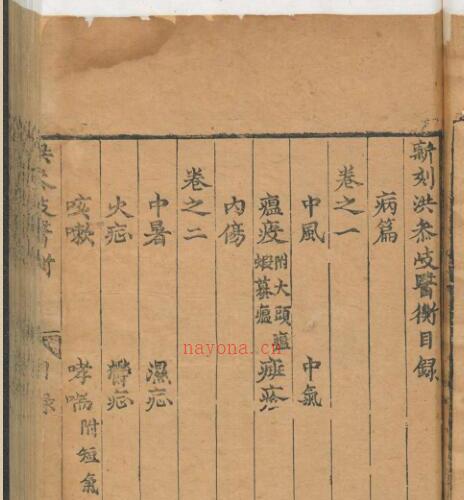 新刻洪叅岐醫衡目錄
病篇
卷之一
中風 中氣
瘟疫 附大頭瘟 蝦蟇瘟
內傷
卷之二
中暑 濕症
火症 鬱症
咳嗽 哮喘 附短氣
洪叅岐醫衡 目錄
nayona.cn